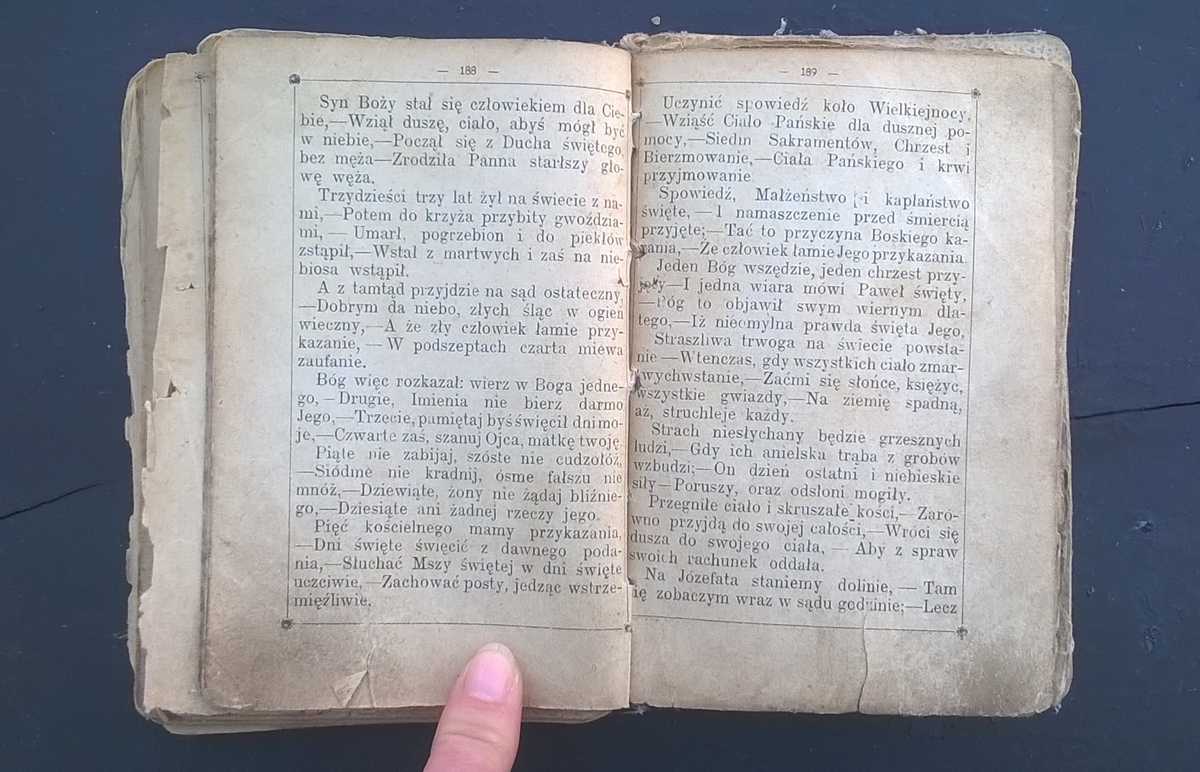 — 188 —
Syn Boży stał się człowiekiem dla Cie-
bie,—Wziął duszę, ciało, abyś mógł być
w niebie,—Począł się z Ducha świętego,
bez męża—Zrodziła Panna starłszy gło-
wę węża.
Trzydzieści trzy lat żył na świecie z na-
mi,—Potem do krzyża przybity gwoździa-
mi, — Umarł, pogrzebion i do piekłów
zstąpił,—Wstał z martwych i zaś na nie-
biosa wstąpił.
A z tamtąd przyjdzie na sąd ostateczny,
—Dobrym da niebo, złych śląc w ogień
wieczny,—A że zły człowiek łamie przy-
kazanie, — W podszeptach czarta miewa
zaufanie.
Bóg więc rozkazał: wierz w Boga jedne-
go,—Drugie, Imienia nie bierz darmo
Jego,—Trzecie, pamiętaj byś święcił dni mo-
je,—Czwarte zaś, szanuj Ojca, matkę twoję.
Piąte nie zabijaj, szóste nie cudzołóż,
—Siódme nie kradnij, ósme fałszu nie
mnóż,—Dziewiąte, żony nie żądaj bliźnie-
go,—Dziesiąte ani żadnej rzeczy jego.
Pięć kościelnego mamy przykazania,
—Dni święte święcić z dawnego poda-
nia,—Słuchać Mszy świętej w dni święte
uczciwie,—Zachować posty, jedząc wstrze-
mięźliwie.
— 189 —
Uczynić spowiedź koło Wielkiejnocy,
—Wziąść Ciało Pańskie dla dusznej po-
mocy,—Siedm Sakramentów, Chrzest i
Bierzmowanie,—Ciała Pańskiego i krwi
przyjmowanie.
Spowiedź, Małżeństwo i kapłaństwo
święte, — I namaszczenie przed śmiercią
przyjęte;—Tać to przyczyna Boskiego ka-
rania,—Że człowiek łamie Jego przykazania.
Jeden Bóg wszędzie, jeden chrzest przy-
jęty—I jedna wiara mówi Paweł święty,
—Bóg to objawił swym wiernym dla-
tego,—Iż nieomylna prawda święta Jego,
Straszliwa trwoga na świecie powsta-
nie—Wtenczas, gdy wszystkich ciało zmar-
twychwstanie,—Zaćmi się słońce, księżyc,
wszystkie gwiazdy,—Na ziemię spadną,
aż, struchleje każdy.
Strach niesłychany będzie grzesznych
ludzi,—Gdy ich anielska trąba z grobów
wzbudzi;—On dzień ostatni i niebieskie
siły—Poruszy, oraz odsłoni mogiły.
Przegniłe ciało i skruszałe kości,—Zaró-
wno przyjdą do swojej całości,—Wróci się
dusza do swojego ciała, — Aby z spraw
swoich rachunek oddała.
Na Józefata staniemy dolinie, — Tam
się zobaczym wraz w sądu godzinie;—Lecz